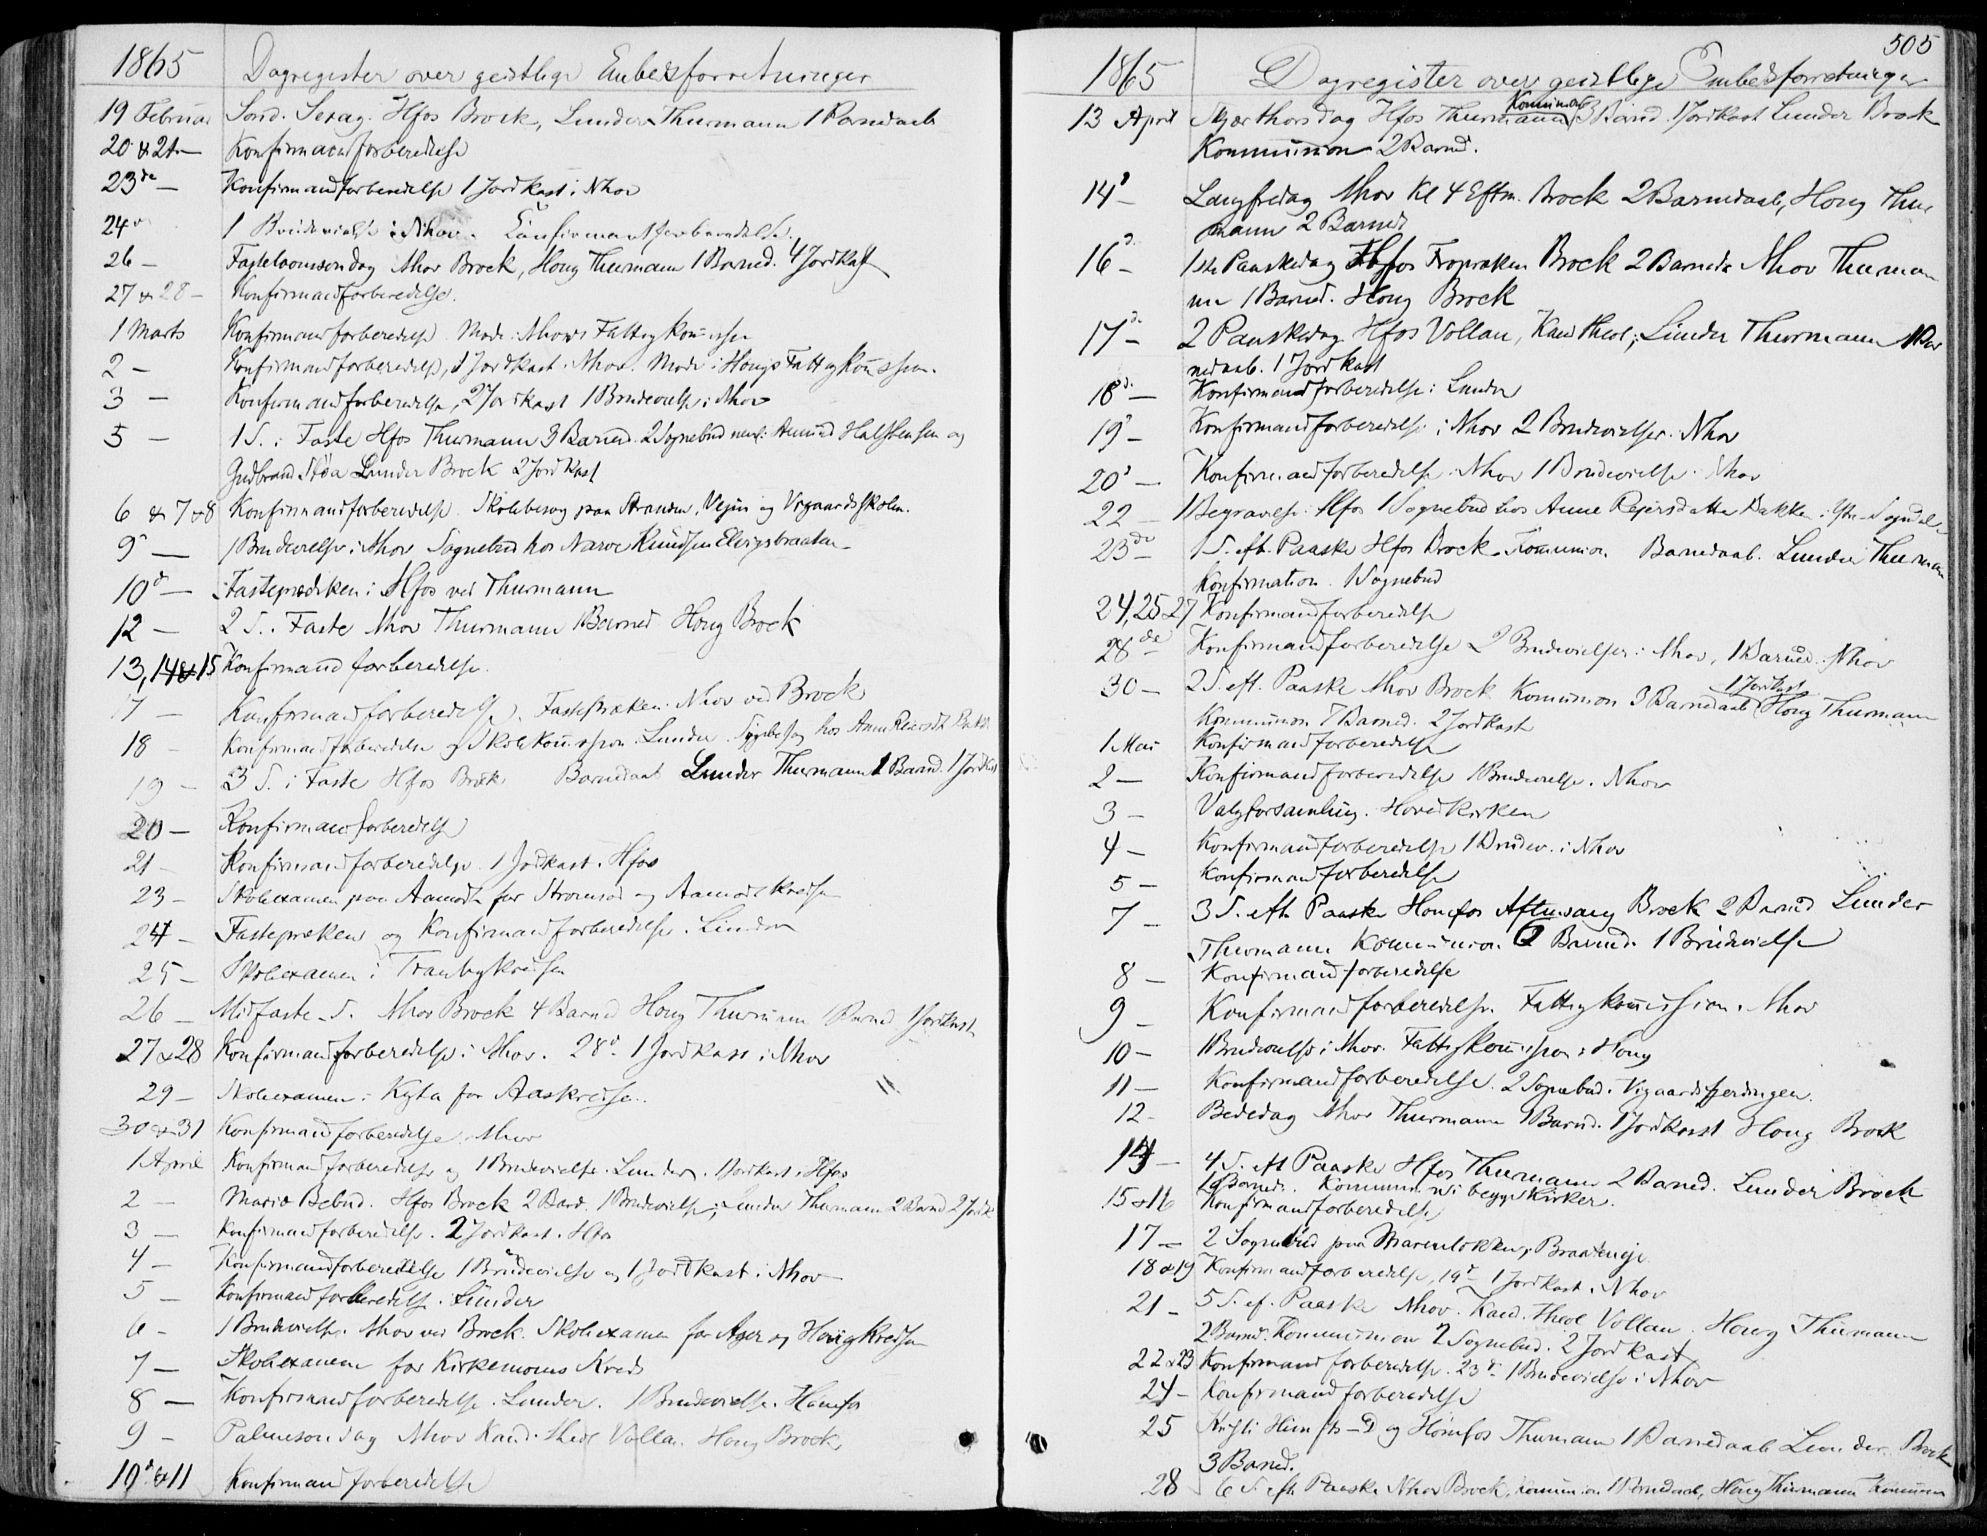 1865 Dagregister over geistlige Embedsforretninger
19 Februar Sønd. Sexag. Hfos Brock, Lunder Thurmann 1 Barnedaab
20 & 21 — Konfirmandforberedelse
23de — Konfirmandforberedelse 1 Jordkast i Nhov
24 1 Brudevielse i Nhov. Konfirmantforberedelse.
26 — Fastelavnssøndag Nhov Brock, Houg Thurmann 1 Barned. 4 Jordkast
27 & 28 — Konfirmandforberedelse.
1 Marts Konfirmandforberedelse Møde i Nhovs Fattigkom̄ission
2 — Konfirmandforberedelse, 1 Jordkast i Nhov. Møde i Hougs Fattigkom̄ission.
3 — Konfirmandforberedelse, 2 Jordkast 1 Brudevielse i Nhov
5 — 1 S. i Faste Hfos Thurmann 3 Barned. 2 Sognebud neml: Amund Halstensen og
Gudbrand Lunder Brock 2 Jordkast
6 & 7 & 8 Konfirmandforberedelse. Skolebesøg paa Stranden, Vejen og Vegaardsskolen.
9 — 1 Brudevielse i Nhov Sognebud hos Narve Knudsen Elvigsbraaten
10d — Fasteprædiken i Hfos ved Thurmann
12 — 2 S. i Faste Nhov Thurmann 1 Barned Houg Brock
13, 14 & 15 Konfirmandforberedelse.
17 — Konfirmandforberedelse. Fastepræken i Nhov ved Brock
18 — Konfirmandforberedelse og Skolekom̄ission i Lunder. Sygebesøg hos Anne
19 — 3 S. i Faste Hfos Brock Barnedaab Lunder Thurmann 1 Barned. 1 Jordkast
20 — Konfirmandforberedelse
21 — Konfirmandforberedelse. 1 Jordkast i Hfos
23 — Skolexamen paa Aamodt for Strømsod og Aamodtkredsen
24 — Fastepræken og Konfirmandforberedelse i Lunder
25 — Skolexamen i Tranbykredsen
26 — Midfaste S. Nhov Brock 4 Barned Houg Thurmann Barned 1 Jordkast
27 & 28 Konfirmandforberedelse i Nhov. 28d. 1 Jordkast i Nhov
29 — Skolexamen i Kytte for Aaskredsen.
30 & 31 Konfirmandforberedelse i Nhov
1 April Konfirmandforberedelse og 1 Brudevielse i Lunder. 1 Jordkast i Hfos
2 — Mariæ Bebud. Hfos Brock 2 Barn. 1 Brudevielse; Lunder Thurmann 2 Barned 2 Jordk
3 — Konfirmandforberedelse. 2 Jordkast i Hfos
4 — Konfirmandforberedelse 1 Brudevielse og 1 Jordkast i Nhov
5 — Konfirmandforberedelse i Lunder
6 — 1 Brudevielse i Nhov ved Brock. Skolexamen for Ager og Hougkredsen
7 — Skolexamen for Kirkemoens Kreds
8 — Konfirmandforberedelse i Lunder. 1 Brudevielse i Hønefos
9 — Palmesøndag Nhov Kand. theol Vollan. Houg Brock
10d & 11 Konfirmandforberedelse
505
1865 Dagregister over geistlige Embedsforretninger
Kommunion
13 April Skjærthorsdag Hfos Thurmann 3 Barned. 1 Jordkast Lunder Brock
Kommunion 2 Barned.
14d — Langfredag Nhov Kl 4 Eftm. Brock 2 Barnedaab, Houg Thur
mann 2 Barned
16d. — 1ste Paaskedag Hfos Fropræken Brock 2 Barneda Nhov Thurma
nn 1 Barned. Houg Brock
17d. — 2 Paaskedag Hfos Vollan, Kand theol; Lunder Thurmann 1 Bar
nedaab. 1 Jordkast
18d. — Konfirmandforberedelse i Lunder
19d — Konfirmandforberedelse i Nhov 2 Brudevielser i Nhov
20d — Konfirmandforberedelse i Nhov 1 Brudevielse i Nhov
22 — 1 Begravelse i Hfos 1 Sognebud hos Anne Rejersdatter Bakken i Ytre Sogndal
23de — 1 S. eft. Paaske Hfos Brock. Kommunion Barnedaab. Lunder Thurmann
Konfirmation. 1 Sognebud
24, 25 & 27 Konfirmandforberedelse
28de — Konfirmandforberedelse 2 Brudevielser i Nhov, 1 Barned. i Nhov
1 Jordkast
30 — 2 S. eft. Paaske Nhov Brock Kommunion 3 Barnedaab Houg Thurmann
Kommunion 7 Barned. 2 Jordkast
1 Mai Konfirmandforberedelse
2 — Konfirmandforberedelse 1 Brudevielse i Nhov
3 — Valgforsamling i Hovedkirken
4 — Konfirmandforberedelse 1 Brudev. i Nhov
5 — Konfirmandforberedelse
7 — 3 S. eft. Paaske Hønefos Aftensang Brock 2 Barned Lunder
Thurmann Kommunion 6 Barned. 1 Brudevielse
8 — Konfirmandforberedelse
9 — Konfirmandforberedelse. Fattigkom̄ission i Nhov
10 — 1 Brudevielse i Nhov. Fattigkom̄ission i Houg
11 — Konfirmandforberedelse. 2 Sognebud i Vegaardsfjerdingen.
12 — Bededag Nhov Thurmann 1 Barned. 1 Jordkast Houg Brock
14 — 4 S. eft Paaske Hfos Thurmann 2 Barned. Lunder Brock
1 Barned. Kommunion i begge Kirker.
15 & 16 Konfirmandforberedelse
17 — 2 Sognebud paa Marenløkken, Braateneje
18 & 19 Konfirmandforberedelse, 19d 1 Jordkast i Nhov
21 — 5 S. ef. Paaske Nhov. Kand. theol Vollan. Houg Thurmann
2 Barned. Kommunion 2 Sognebud. 2 Jordkast
22 & 23 Konfirmandforberedelse. 23d. 1 Brudevielse i Nhov
24 — Konfirmandforberedelse
25 Kristi Himf̄ts-D og Hønefos Thurmann 1 Barnedaab Lunder Brock
3 Barned.
28 6 S. eft. Paaske Nhov Brock, Kommunion 1 Barnedaab, Houg Thurmann Kommunion